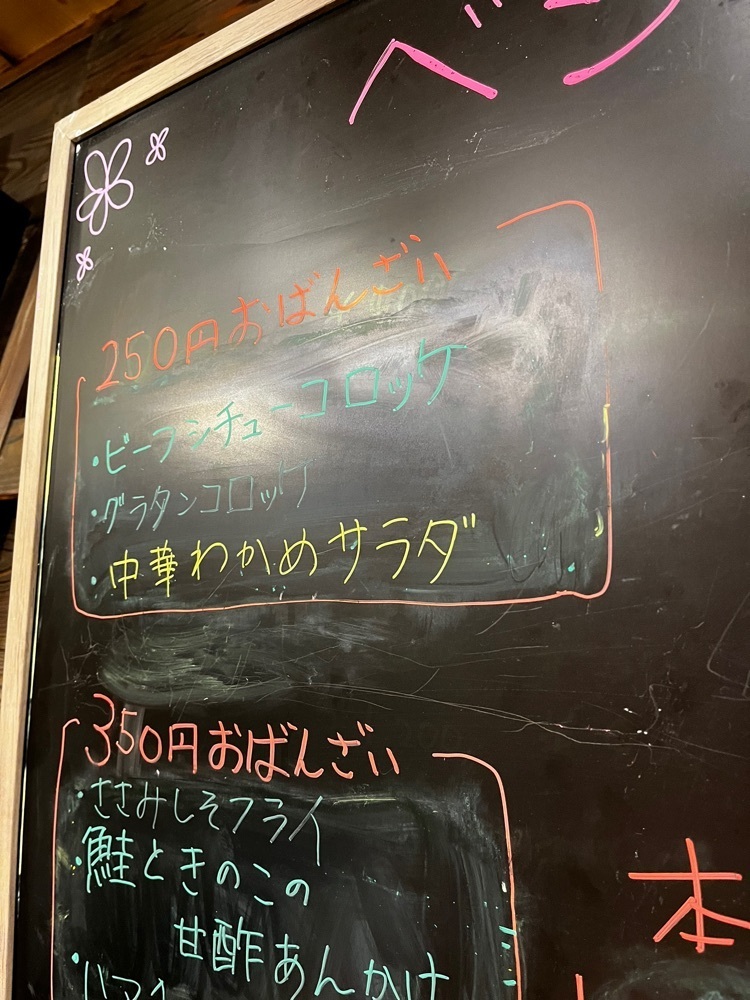 250円おばんざい
・ビーフシチューコロッケ
・グラタンコロッケ
・中華わかめサラダ
350円おばんざい
・ささみしそフライ
・鮭ときのこの
甘酢あんかけ
本